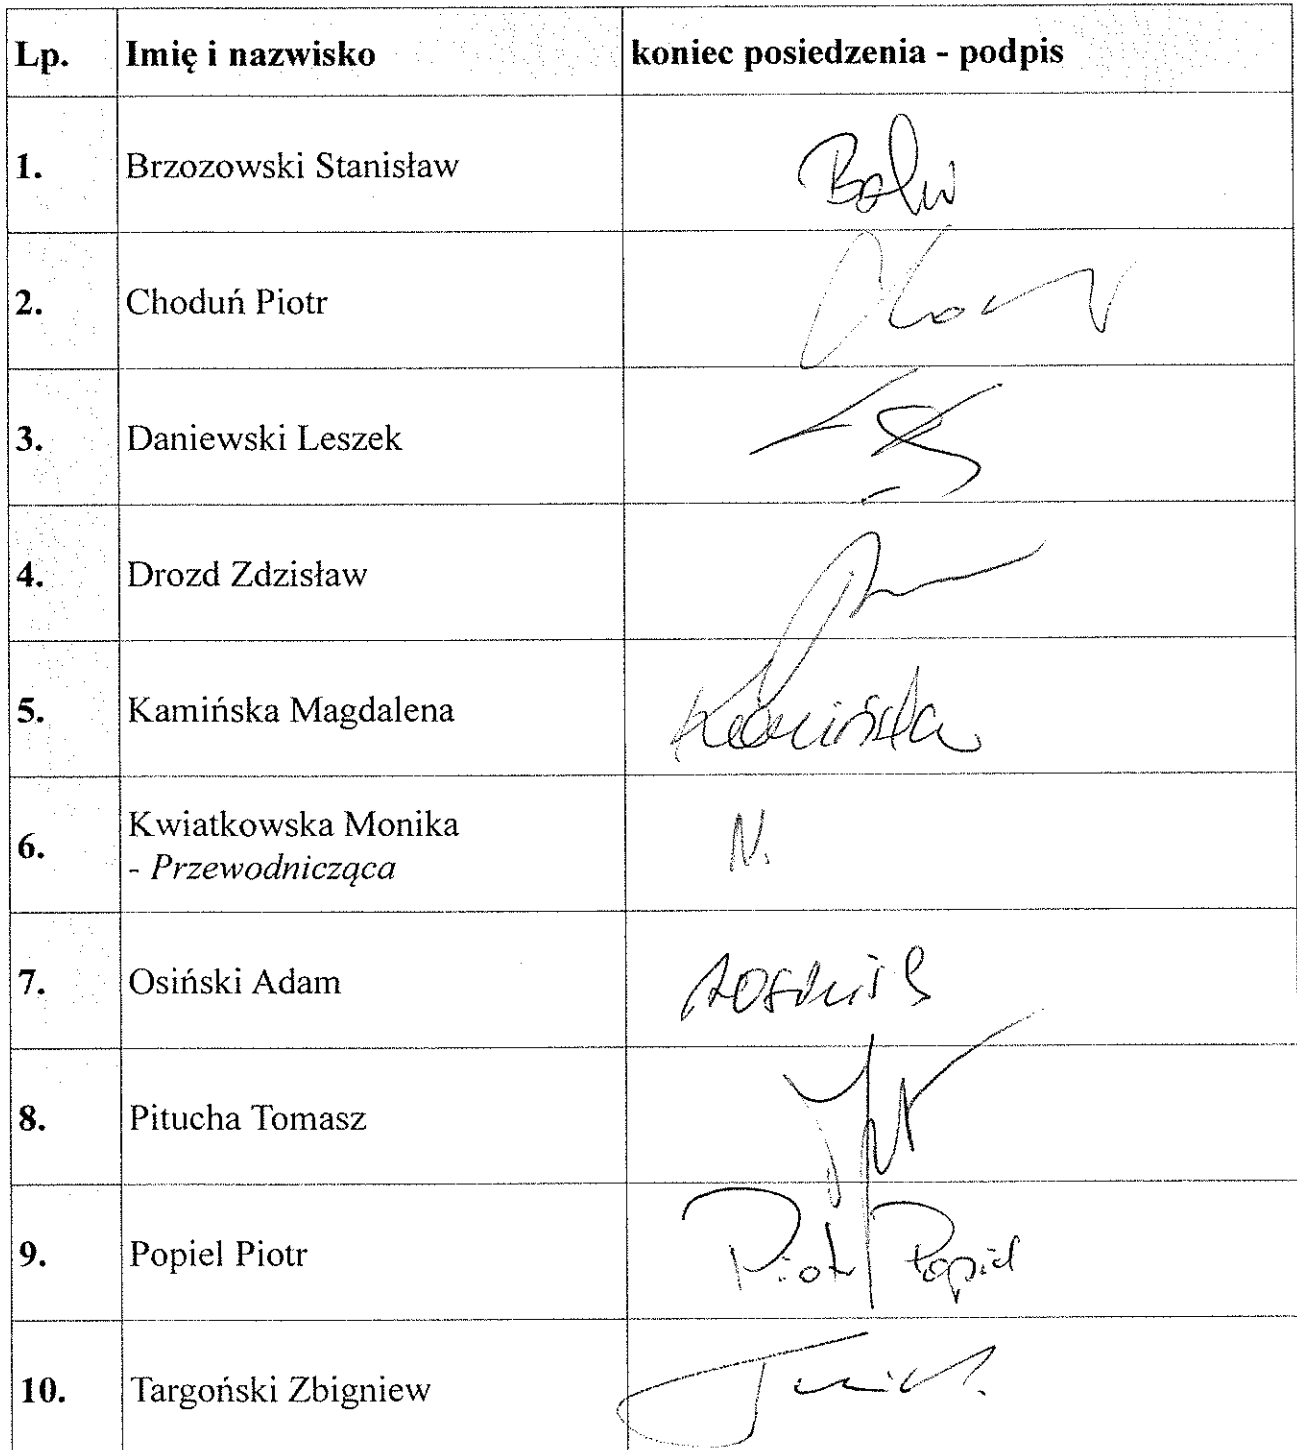 Lp. Imię i nazwisko koniec posiedzenia - podpis
1. Brzozowski Stanisław
2. Choduń Piotr
3. Daniewski Leszek
4. Drozd Zdzisław
5. Kamińska Magdalena Kamińska
6. Kwiatkowska Monika
- Przewodnicząca
N.
7. Osiński Adam
8. Pitucha Tomasz
9. Popiel Piotr Piotr Popiel
10. Targoński Zbigniew